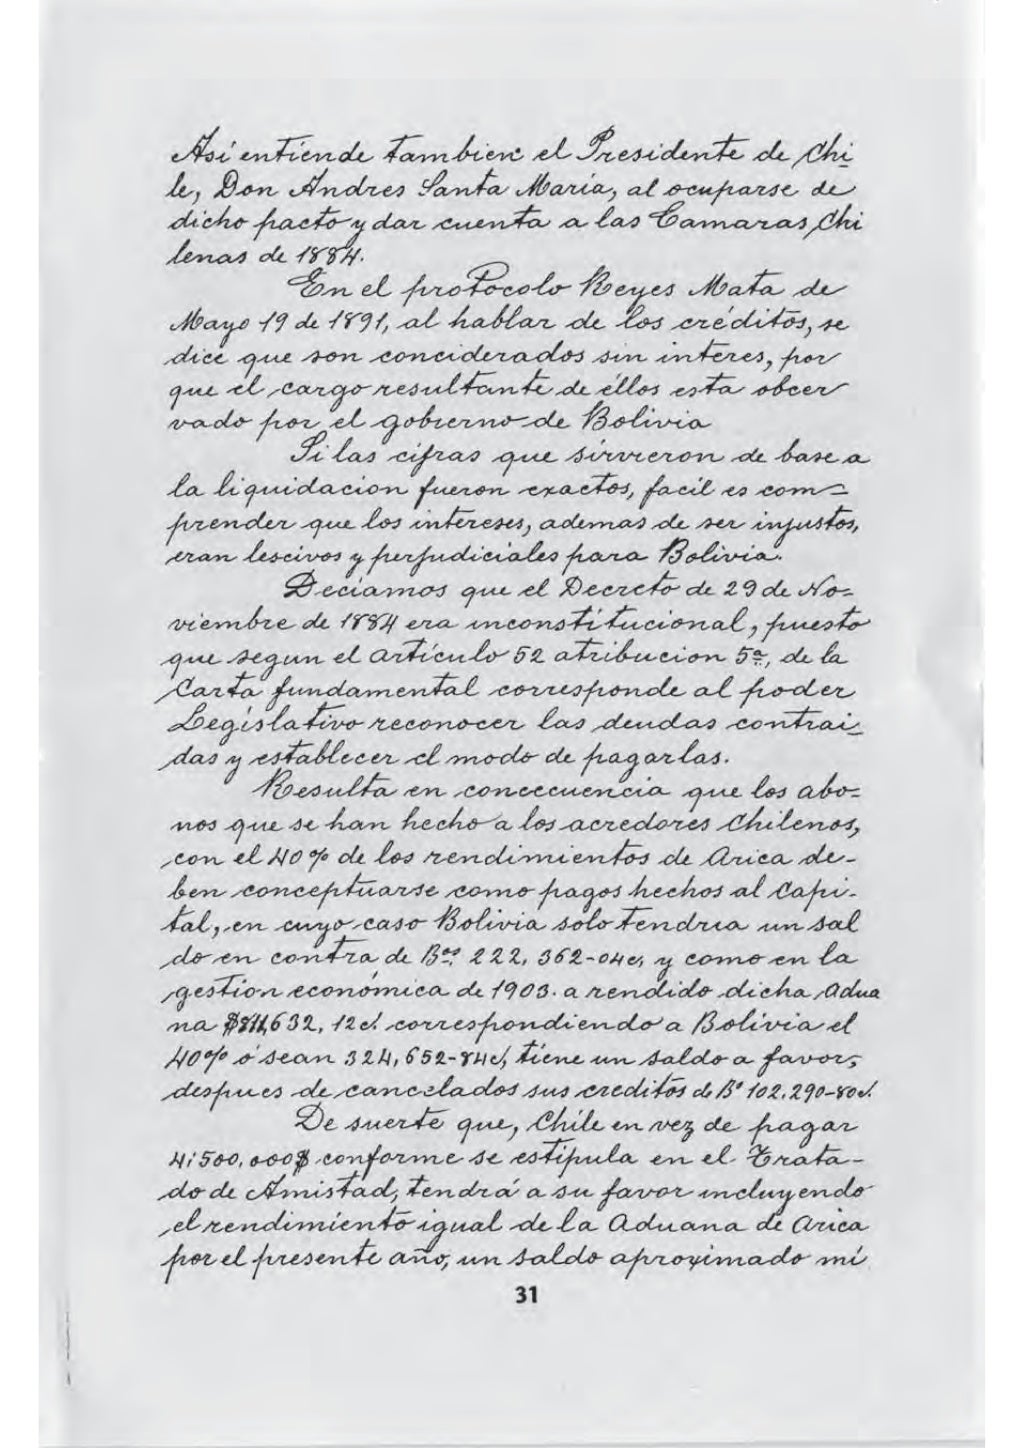 Así entiende tambien el Presidente de Chi
le, Don Andres Santa María, al ocuparse de
dicho pacto y dar cuenta a las Camaras Chi
lenas de 1884.
En el protocolo Reyes Mata de
Mayo 19 de 1891, al hablar de los créditos, se
dice que son conciderados sin interes, por
que el cargo resultante de éllos esta obcer
vado por el gobierno de Bolivia
Si las cifras que sirvieron de base a
la liquidacion fueron exactos, facil es com-
prender que los intereses, ademas de ser injustos,
eran lescivos y perjudiciales para Bolivia.
Deciamos que el Decreto de 29 de No-
viembre de 1884 era inconstitucional, puesto
que segun el artículo 52 atribucion 5ª, de la
Carta fundamental corresponde al poder
Legislativo reconocer las deudas contrai_
das y establecer el modo de pagarlas.
Resulta en concecuencia que los abo-
nos que se han hecho a los acredores Chilenos,
con el 40% de los rendimientos de Arica de-
ben conceptuarse como pagos hechos al Capi-
tal, en cuyo caso Bolivia solo tendria un sal
do en contra de Bos 222,362-04c, y como en la
gestion económica de 1903. a rendido dicha Adua
na 632,12c/. correspondiendo a Bolivia el
40% ó sean 324,652-84c/, tiene un saldo a favor,
despues de cancelados sus creditos de Bs 102.290-80c/.
De suerte que, Chile en vez de pagar
4;500,000$ conforme se estipula en el Trata-
do de Amistad, tendrá a su favor incluyendo
el rendimiento igual de la Aduana de Arica
por el presente año, un saldo aproximado mí
31